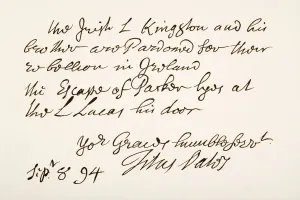 the Irish L Kingston and his
brother are Pardoned for their
rebellion in Ireland
the Escape of Parker lyes at
the L Lucas his door
Yor Graces humble servt.
Sepr 8 94 Titus Oates